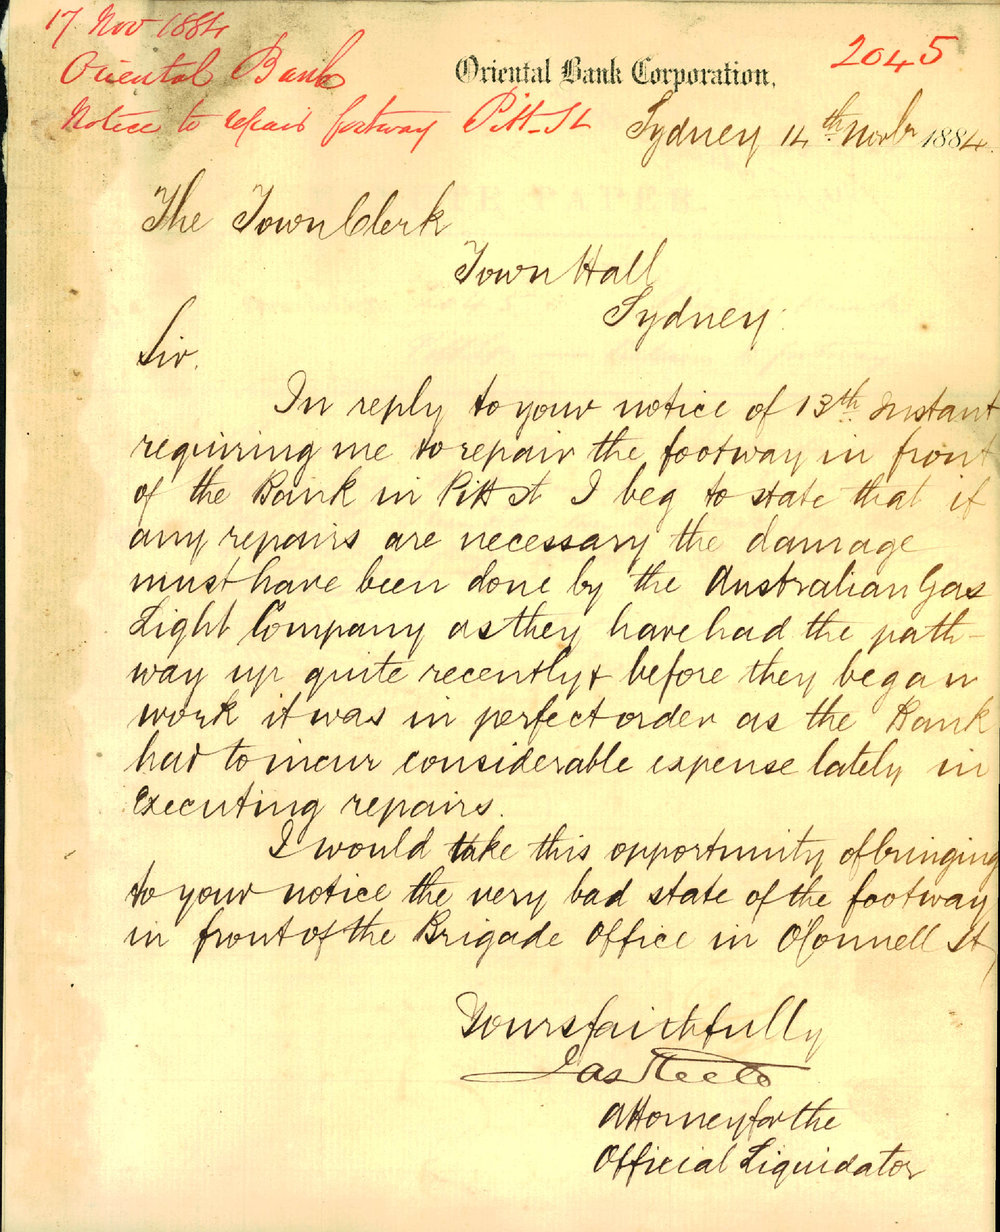 17 Nov 1884
Oriental Bank
Notice to repair footway Pitt St
2045
Oriental Bank Corporation,
Sydney 14th Novbr 1884
The Town Clerk
Town Hall
Sydney
Sir.
In reply to your notice of 13th Instant
requiring me to repair the footway in front
of the Bank in Pitt St I beg to state that if
any repairs are necessary the damage
must have been done by the Australian Gas
Light Company as they have had the path-
way up quite recently & before they began
work it was in perfect order as the Bank
had to incur considerable expense lately in
executing repairs.
I would take this opportunity of bringing
to your notice the very bad state of the footway
in front of the Brigade Office in O'Connell St
Yours faithfully
Jas
Attorney for the
Official Liquidator